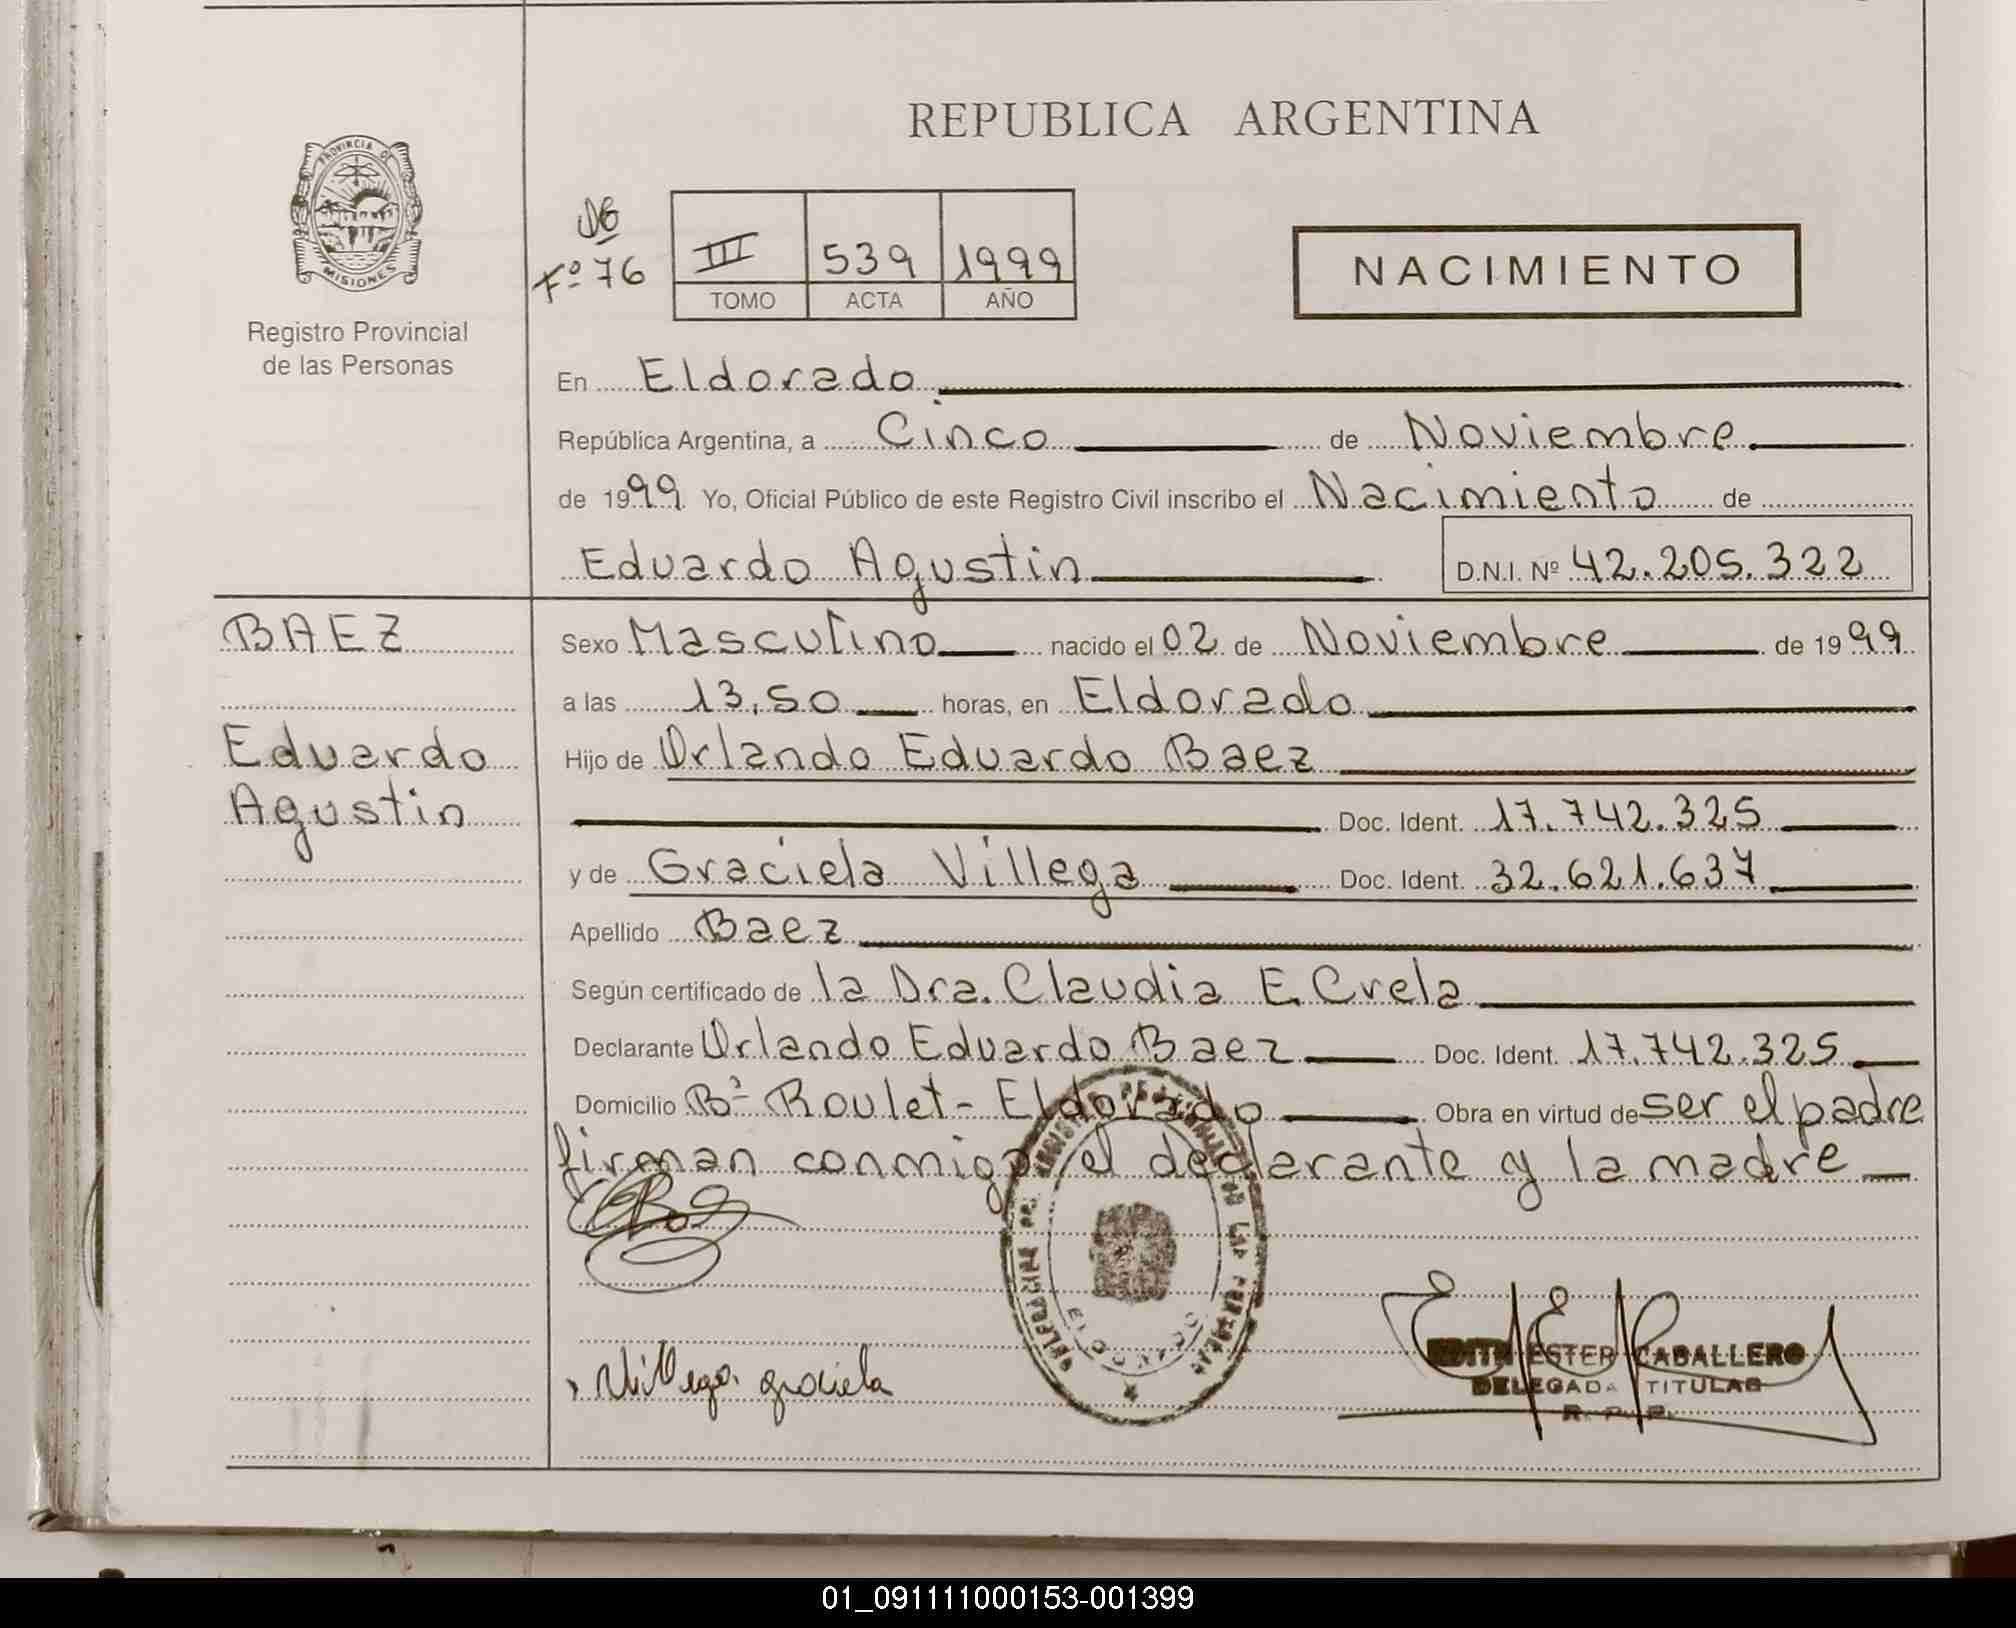 REPUBLICA ARGENTINA
PROVINCIA DE
MISIONES
Registro Provincial
de las Personas
Fº 76
III 539 1999
TOMO ACTA AÑO
NACIMIENTO
En Eldorado
República Argentina, a Cinco de Noviembre
de 1999 Yo, Oficial Público de este Registro Civil inscribo el Nacimiento de
Eduardo Agustin D.N.I. Nº 42.205.322
BAEZ
Eduardo
Agustin
Sexo Masculino nacido el 02 de Noviembre de 1999
a las 13,50 horas, en Eldorado
Hijo de Orlando Eduardo Baez
Doc. Ident. 17.742.325
y de Graciela Villega Doc. Ident. 32.621.637
Apellido Baez
Según certificado de la Dra. Claudia E. Crela
Declarante Orlando Eduardo Baez Doc. Ident. 17.742.325
Domicilio Bº Roulet - Eldorado Obra en virtud de ser el padre
firman conmigo el declarante y la madre
ELDORADO
Villega graciela
EDITH ESTER CABALLERO
DELEGADA TITULAR
R. P. P.
01_091111000153-001399